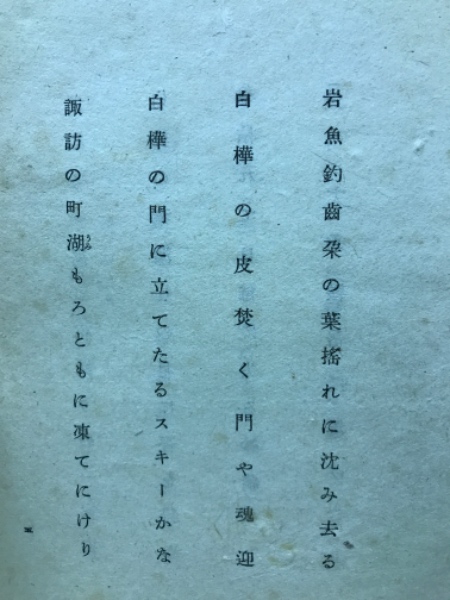 岩魚釣歯朶の葉揺れに沈み去る
白樺の皮焚く門や魂迎
白樺の門に立てたるスキーかな
諏訪の町湖もろともに凍てにけり
うみ
五